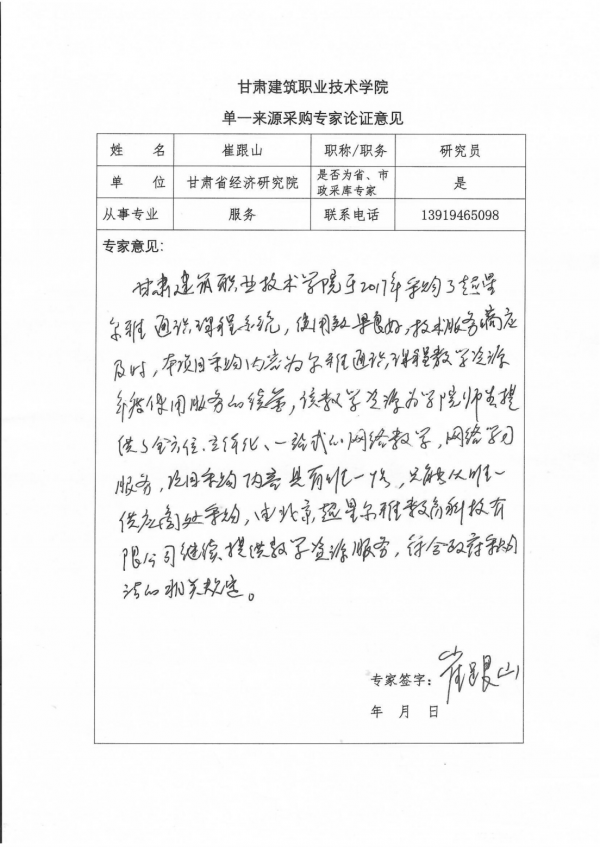 甘肃建筑职业技术学院
单一来源采购专家论证意见
姓 名 崔跟山 职称/职务 研究员
单 位 甘肃省经济研究院 是否为省、市政采库专家 是
从事专业 服务 联系电话 13919465098
专家意见：
甘肃建筑职业技术学院于2017年采购了超星
尔雅通识课程系统，使用效果良好，技术服务响应
及时，本项目采购内容为尔雅通识课程教学资源
使用服务的续签，该教学资源为学院师生提
供了全方位、立体化、一站式的网络教学，网络学习
服务，该项目采购内容具有唯一性，只能从唯一
供应商处采购，由北京超星尔雅教育科技有
限公司继续提供教学资源服务，符合政府采购
法的相关规定。
专家签字：崔跟山
年 月 日